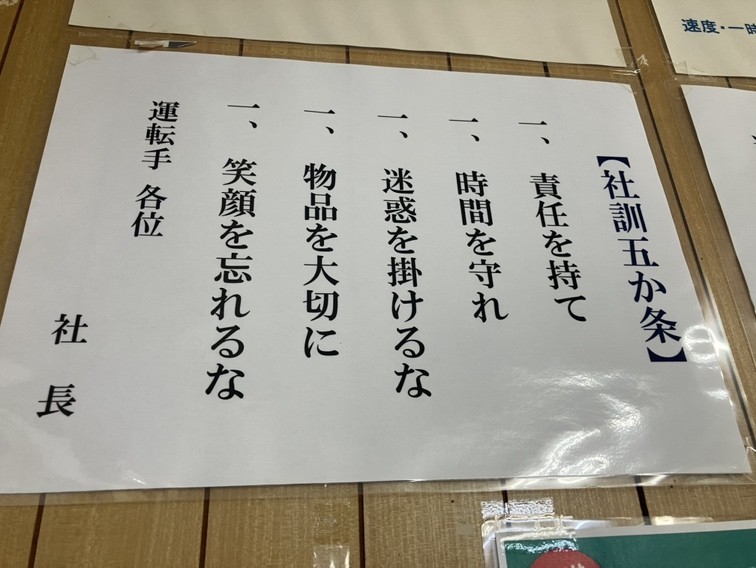 【社訓五か条】
一、責任を持て
一、時間を守れ
一、迷惑を掛けるな
一、物品を大切に
一、笑顔を忘れるな
運転手 各位
社 長
速度・一時